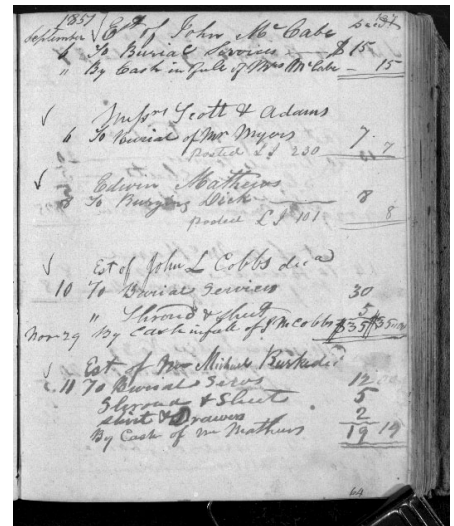 1851 Est of John McCabe
September
6 To Burial Services $15
" By Cash in full of Mrs McCabe 15
√ Messrs Scott & Adams
6 To Burial of Mr Myers 7. 7
posted L I 230
√ Edwin Mathews
8 To Burying Dick 8 8
posted L I 101
√ Est of John L Cobbs decd
10 To Burial Services 30
" Shroud & Sheet 5
Nov 29 By Cash in full of Cobbs $35 $35
√ Est of Michael
11 To Burial Servs 12
Shroud & Sheet 5
Shirt & Drawers 2
By Cash of Mr Mathews 19 19